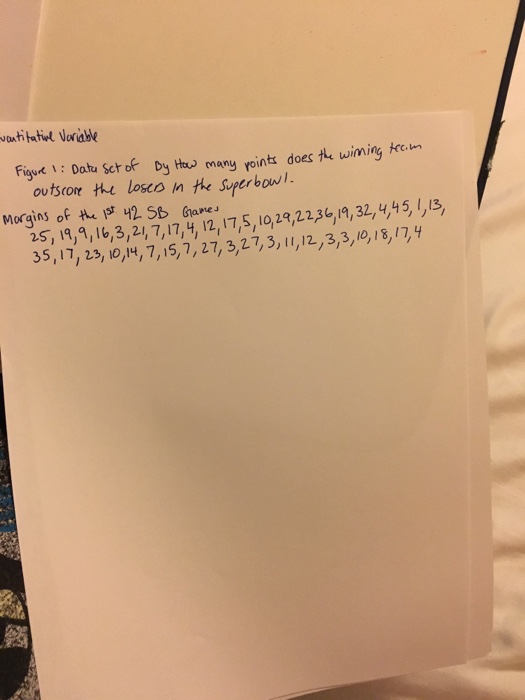 uantitative Variable
Figure 1: Data Set of By How many points does the winning team
outscore the losers in the Superbowl.
Margins of the 1st 42 SB Games
25, 19, 9, 16, 3, 21, 7, 17, 4, 12, 17, 5, 10, 29, 22, 36, 19, 32, 4, 45, 1, 13,
35, 17, 23, 10, 14, 7, 15, 7, 27, 3, 27, 3, 11, 12, 3, 3, 10, 18, 17, 4